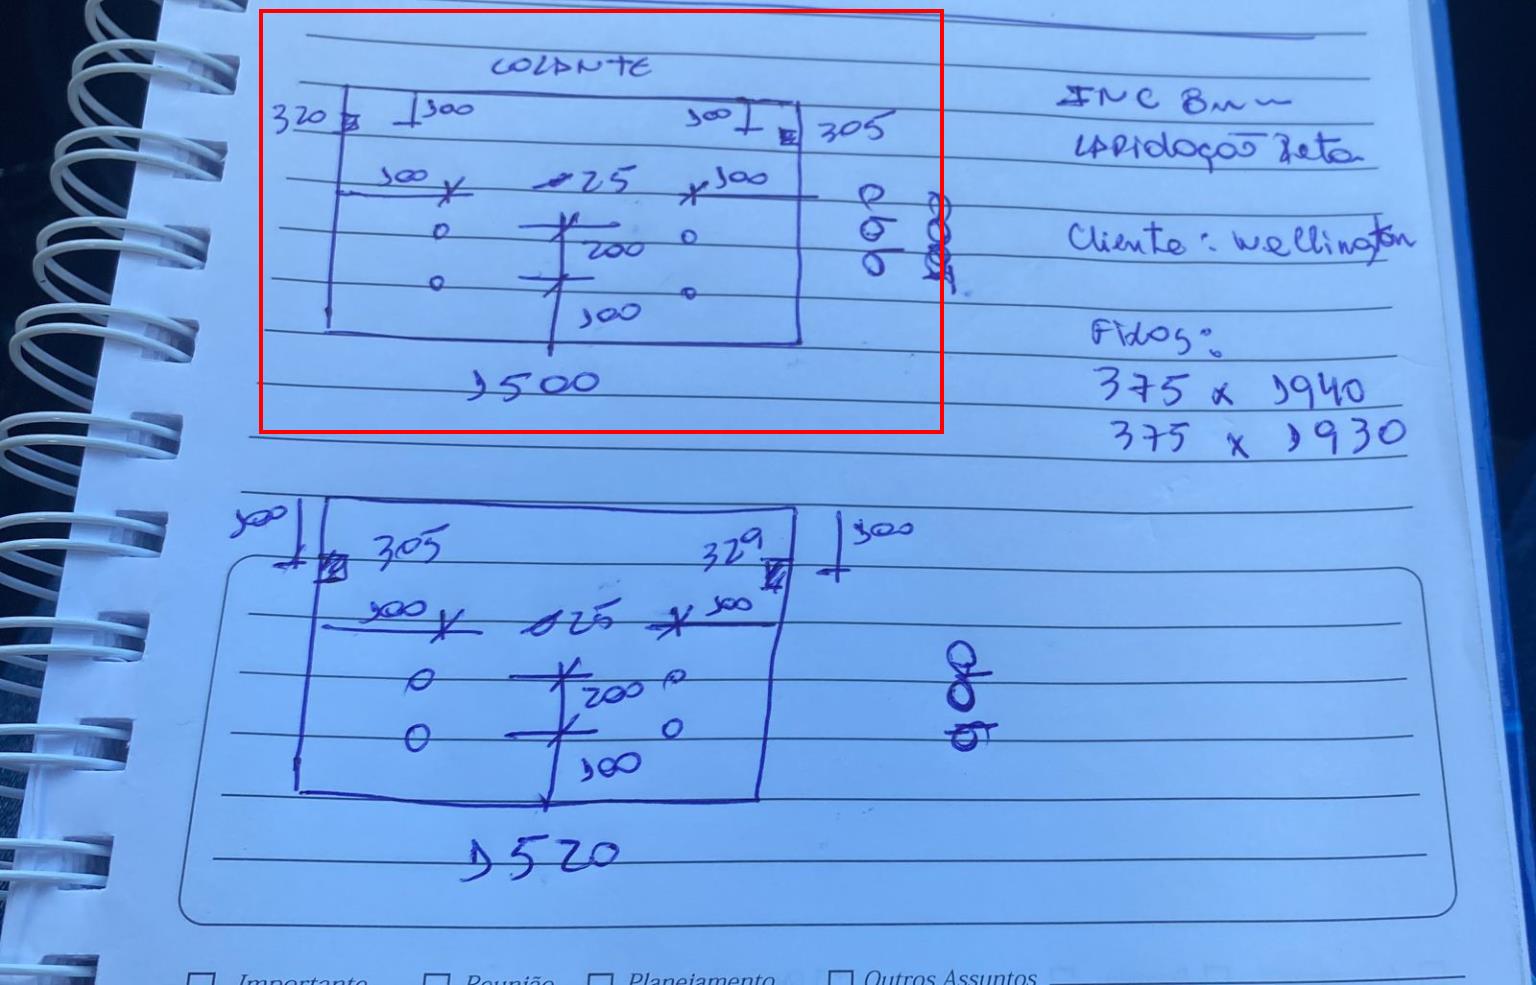 COLANTE
INC 8mm
320 100 100 305
LAPIDAÇÃO Reta
100 ø25 100
Cliente: Wellington
200
100
Fixos:
1500
375 x 1940
375 x 1930
100 305 329 100
100 ø25 100
200
100
1520
Importante Reunião Planejamento Outros Assuntos